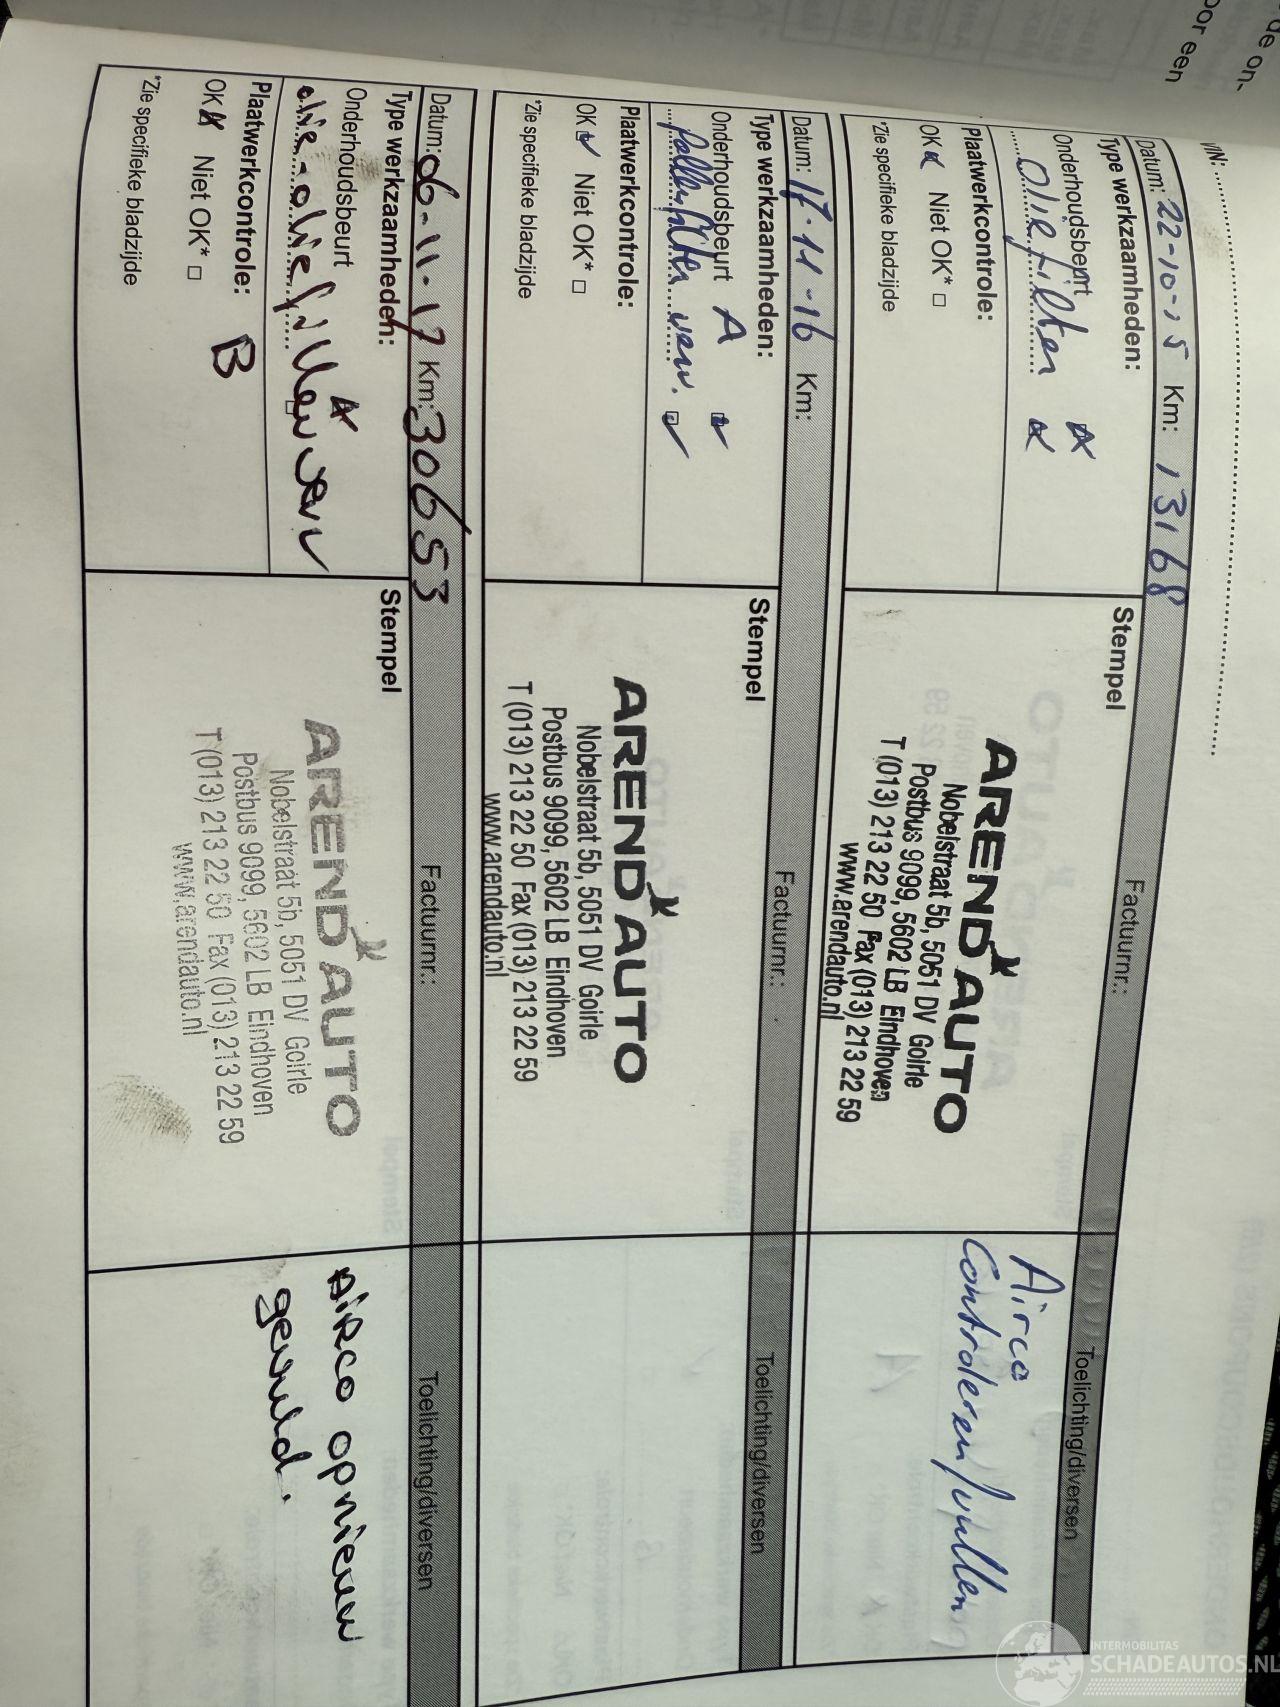 de on-
oor een
VIN:
Datum: 22-10-15 Km: 13168 Factuurnr.: Toelichting/diversen
Type werkzaamheden:
Onderhoudsbeurt
Olie filter
Plaatwerkcontrole:
OK Niet OK*
*Zie specifieke bladzijde
Stempel
AREND AUTO
Nobelstraat 5b, 5051 DV Goirle
Postbus 9099, 5602 LB Eindhoven
T (013) 213 22 50 Fax (013) 213 22 59
www.arendauto.nl
Airco
Controleren/vullen
Datum: 17-11-16 Km: Factuurnr.: Toelichting/diversen
Type werkzaamheden:
Onderhoudsbeurt A
Pollenfilter verv.
Plaatwerkcontrole:
OK Niet OK*
*Zie specifieke bladzijde
Stempel
AREND AUTO
Nobelstraat 5b, 5051 DV Goirle
Postbus 9099, 5602 LB Eindhoven
T (013) 213 22 50 Fax (013) 213 22 59
www.arendauto.nl
Datum: 06-11-17 Km: 30653 Factuurnr.: Toelichting/diversen
Type werkzaamheden:
Onderhoudsbeurt
olie-oliefilter verv
Plaatwerkcontrole: B
OK Niet OK*
*Zie specifieke bladzijde
Stempel
AREND AUTO
Nobelstraat 5b, 5051 DV Goirle
Postbus 9099, 5602 LB Eindhoven
T (013) 213 22 50 Fax (013) 213 22 59
www.arendauto.nl
AIRCO opnieuw
gevuld.
INTERMOBILITAS
SCHADEAUTOS.NL